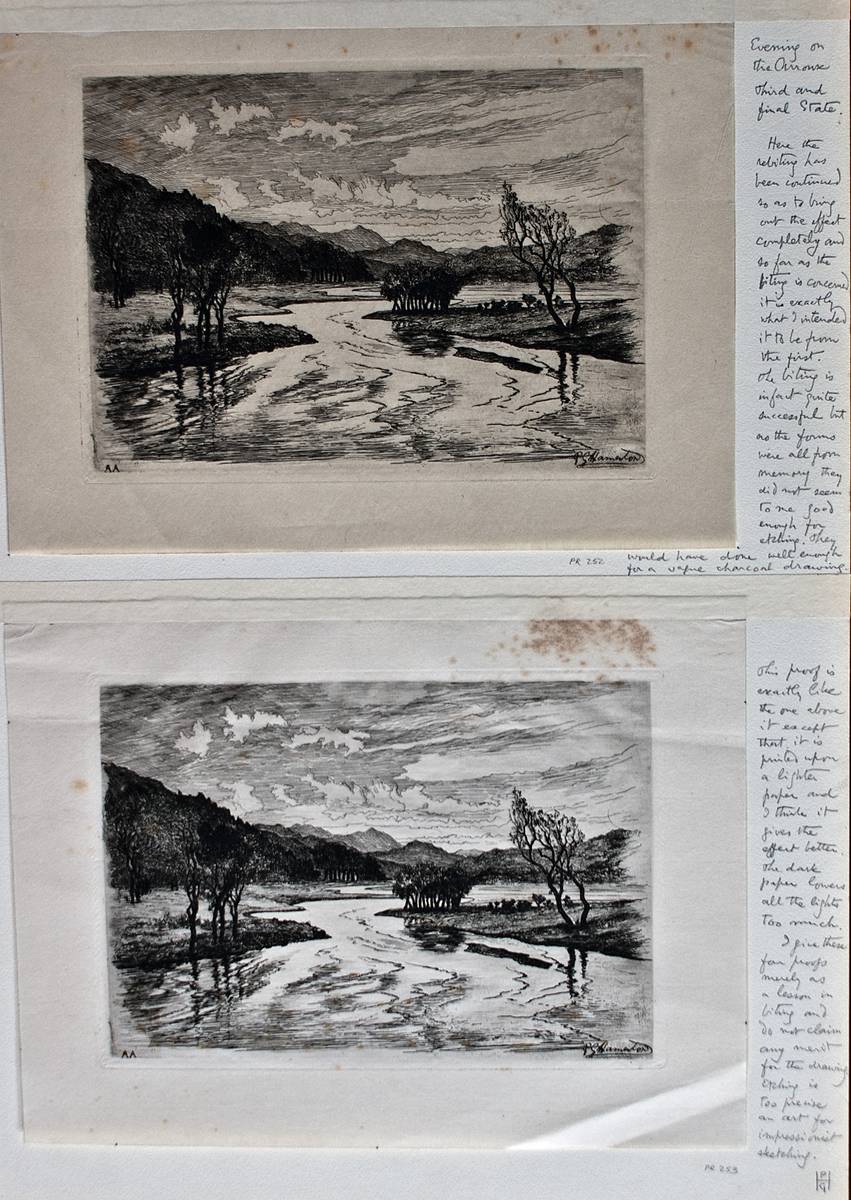 Evening on
the Arroux
third and
final State.
Here the
rebiting has
been continued
so as to bring
out the effect
completely and
so far as the
biting is concerned
it is exactly
what I intended
it to be from
the first.
The biting is
in fact quite
successful but
as the forms
were all from
memory they
did not seem
to me good
enough for
etching. They
would have done well enough
for a vague charcoal drawing.
PR 252
AA
P G Hamerton
This proof is
exactly like
the one above
it except
that it is
printed upon
a lighter
paper and
I think it
gives the
effect better.
The dark
paper lowers
all the lights
too much.
I give these
four proofs
merely as
a lesson in
biting and
do not claim
any merit
for the drawing
Etching is
too precise
an art for
impressionist
sketching.
AA
P G Hamerton
PR 253